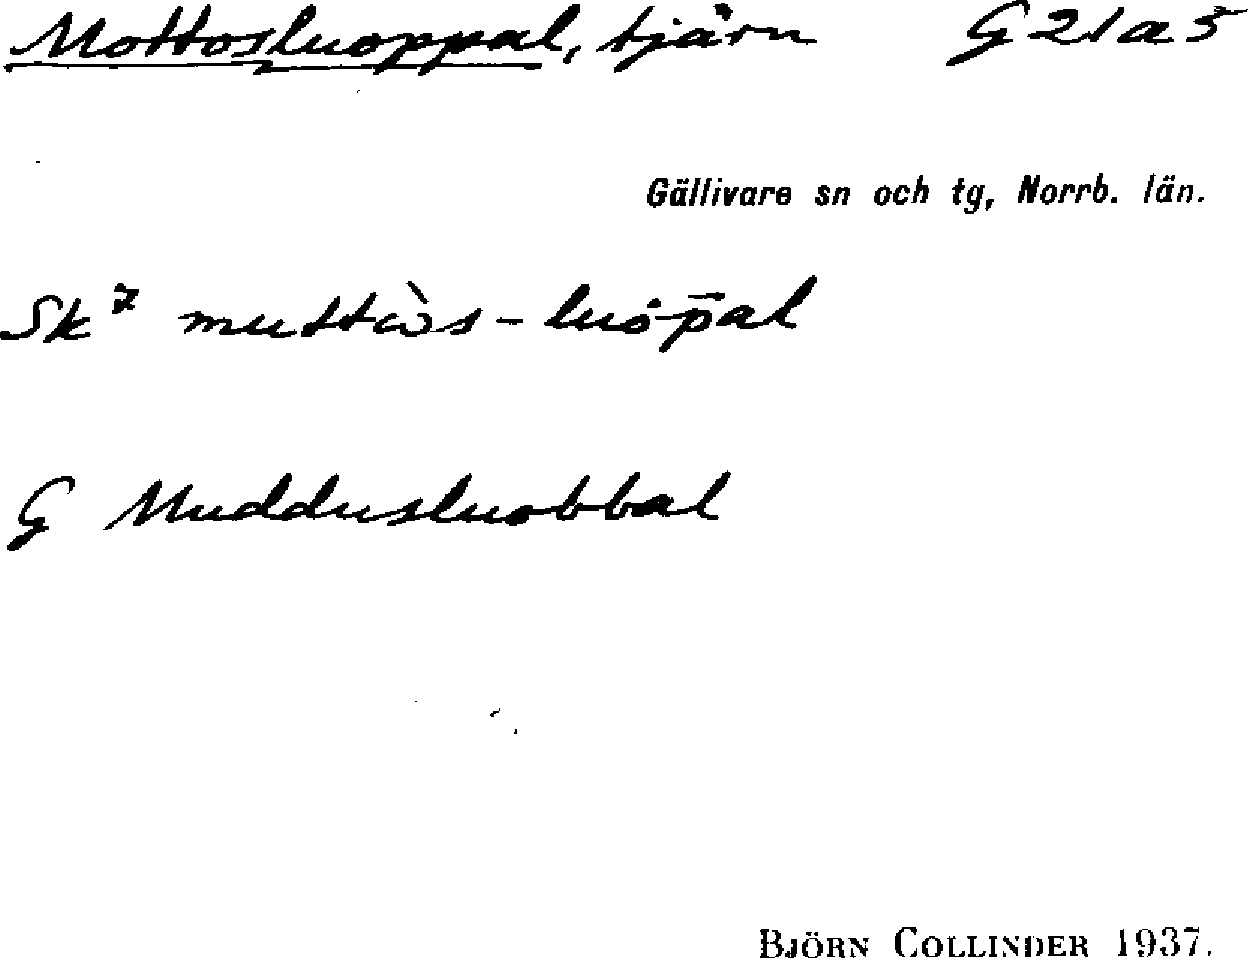 Mottosluoppal, tjärn G21a5
Gällivare sn och tg, Norrb. län.
Sk⁷ muttὼs-luȯp̄al
G Muddusluobbal
BJÖRN COLLINDER 1937.